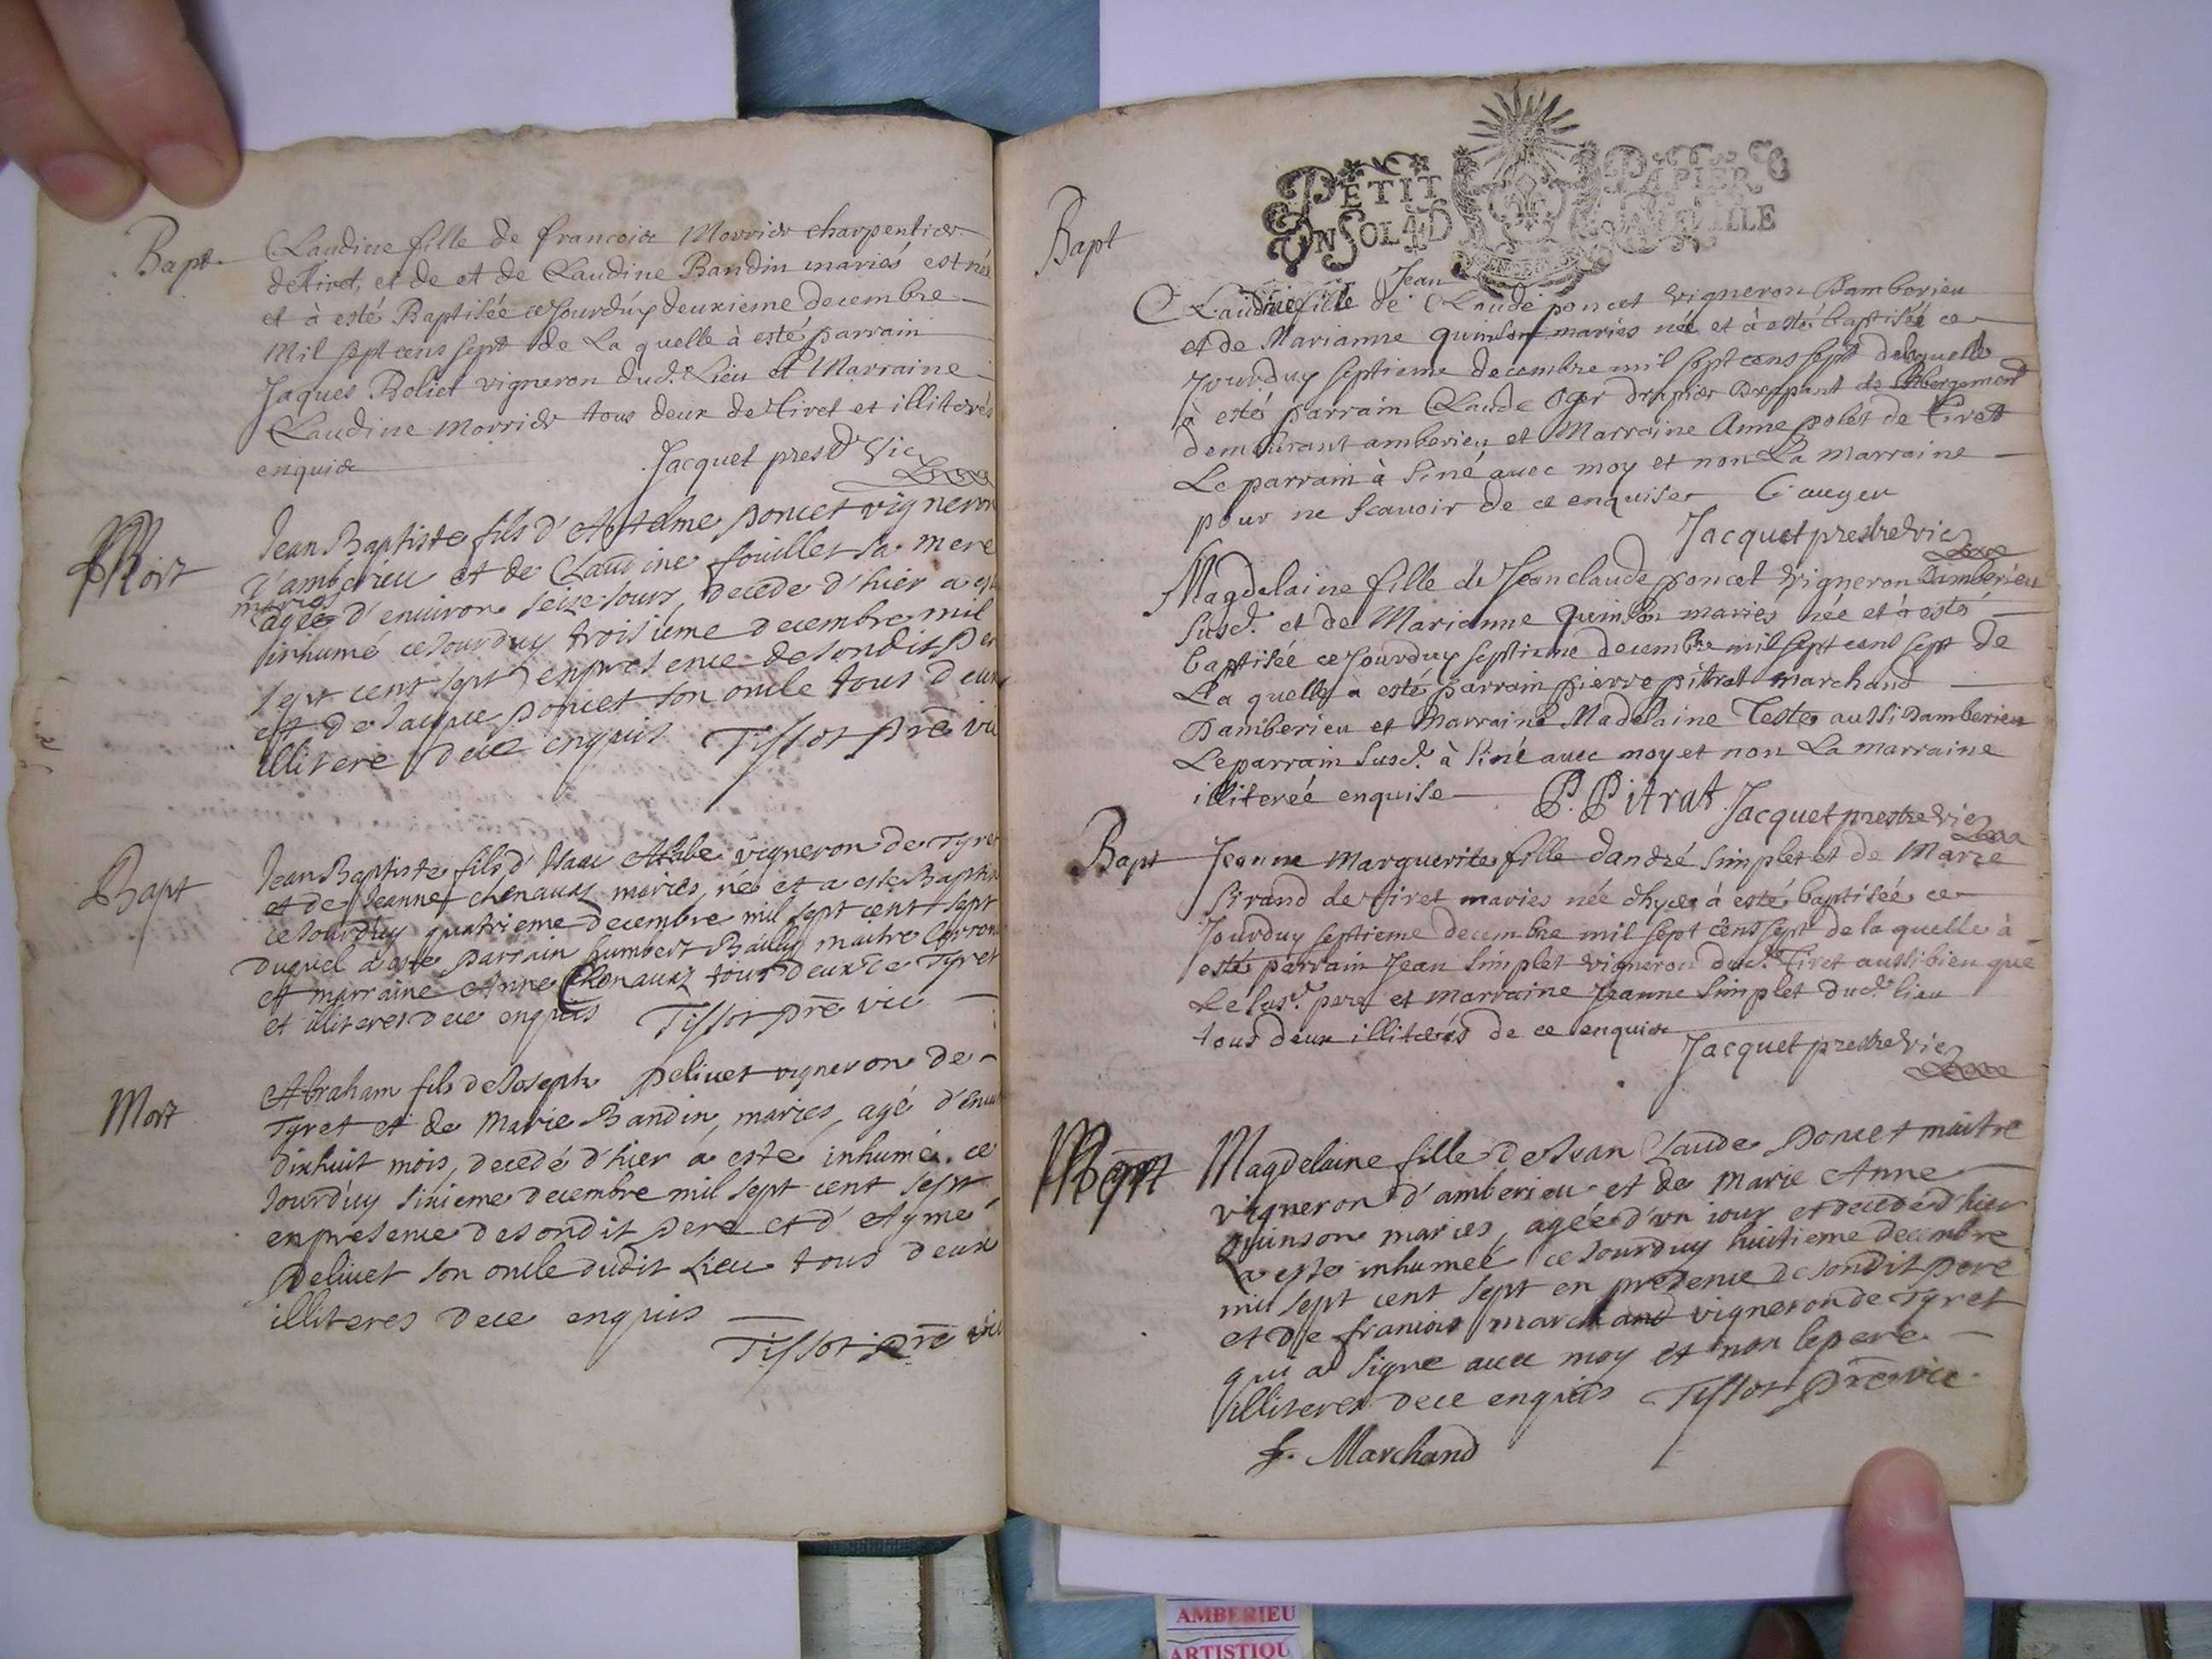 Bapt Claudine fille de francois Morrier charpentier
de Tiret, et de et de Claudine Bandin mariés est née
et à esté Baptisée ce Jourduy deuxieme decembre
Mil sept cens sept de La quelle à esté parrain
Jaques Boliet vigneron dud. Lieu et Marraine
Claudine Morrier tous deux de tiret et illiterés
enquis
Jacquet prestre Vic
Mort Jean Baptiste fils d'Antelme poncet vigneron
d'amberieu et de Claudine fouillet sa mere
mariés
agée d'environ seize Jours, decede d'hier a esté
inhumé ce Jourduy troisieme decembre mil
sept cent sept en presence de sondit per
et de Jacque poncet son oncle tous deux
illiteré dece enquis Tissot pre vic
Bapt Jean Baptiste fils d'Isaac vigneron de Tyret
et de Jeanne chenauaz mariés, né et a esté Baptisé
ce Jourduy quatrieme decembre mil sept cent sept
duquel a esté parrain humbert Bailly maitre
et marraine Anne Chenauaz tous deux de Tyret
et illiteres dece enquis Tissot pre vic
Mort Abraham fils de Joseph peliuet vigneron de
Tyret et de Marie Bandin, mariés, agé d'enui
dixhuit mois, decedé d'hier a esté inhumé ce
Jourduy sixieme decembre mil sept cent sept
en presence de sondit pere et d'Aymé
peliuet son oncle dudit Lieu tous deux
illiteres dece enquis
Tissot pre vic
PETIT PAPIER
UN SOL LA FEUILLE
Bapt
Jean
Claudine fille de Claude poncet vigneron Damberieu
et de Marianne quinson mariés née et à esté baptisée ce
Jourduy septieme decembre mil sept cens sept delaquelle
à esté parrain Claude Oger drapier Drappant de Abergement
demeurant amberieu et Marraine Anne polet de tiret
Le parrain à siné auec moy et non La marraine
pour ne scauoir de ce enquise C auger
Jacquet prestre vic
Magdelaine fille de Jean claude poncet vigneron Damberieu
susd. et de Marianne Quinson mariés née et à esté
baptisée ce Jourduy septieme decembre mil sept cens sept de
La quelle à esté parrain pierre pitrat marchand
Damberieu et Marraine Madelaine Teste aussi Damberieu
Le parrain susd. à siné auec moy et non La marraine
illiterée enquise P. Pitrat. Jacquet prestre vic
Bapt Jeanne Marguerite fille dandré Simplet et de Marie
Sirand de tiret mariés née d'hyer à esté baptisée ce
Jourduy septieme decembre mil sept cens sept de la quelle à
esté parrain Jean Simplet vigneron dud. Tiret aussi bien que
Le susd. pere et marraine Jeanne Simplet dud. lieu
tous deux illiterés de ce enquis
Jacquet prestre vic
Magdelaine fille de Jean Claude Poncet maitre
vigneron d'amberieu et de Marie Anne
quinson mariés, agée d'un iour et decedé d'hier
a esté inhumeé ce Jourduy huitieme decembre
mil sept cent sept en presence de sondit pere
et de francois marchand vigneron de Tyret
qui a signe auec moy et non le pere
illiteres dece enquis Tissot pre vic
f. Marchand
AMBERIEU
ARTISTIQU